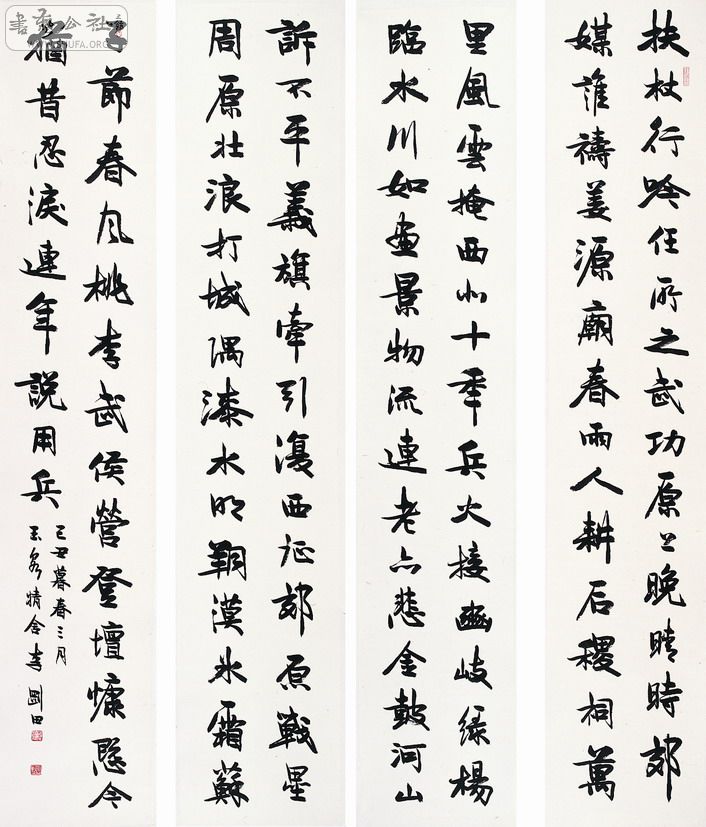 扶杖行吟任所之武功原上晚晴時郊
媒誰禱姜源廟春雨人耕后稷祠萬
里風雲掩西北十年兵火接豳岐綠楊
臨水川如畫景物流連老亦悲金鼓河山
訴不平義旗牽引復西征郊原戰壘
周原壯浪打城隅漆水明朔漠冰霜蘇
子節春風桃李武侯營登壇慷慨今
猶昔忍淚連年說用兵
己丑暮春三月
精舍李剛田